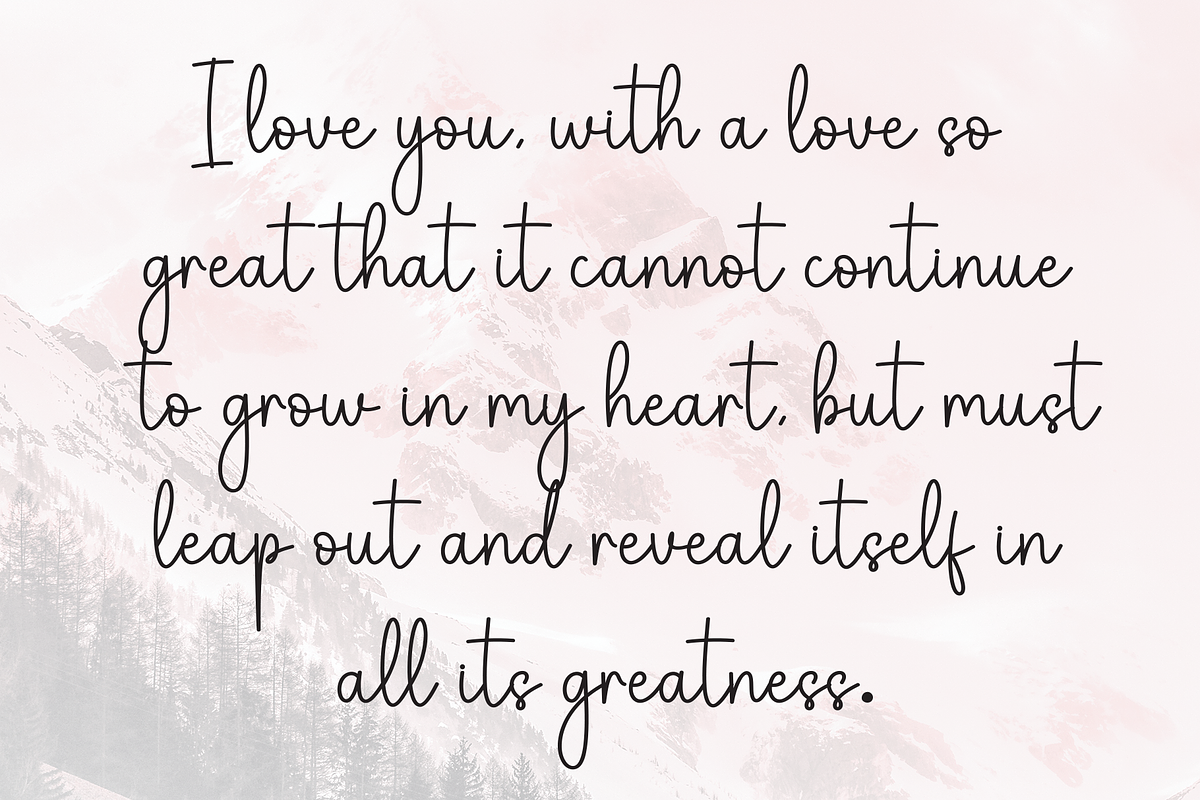 I love you, with a love so
great that it cannot continue
to grow in my heart, but must
leap out and reveal itself in
all its greatness.